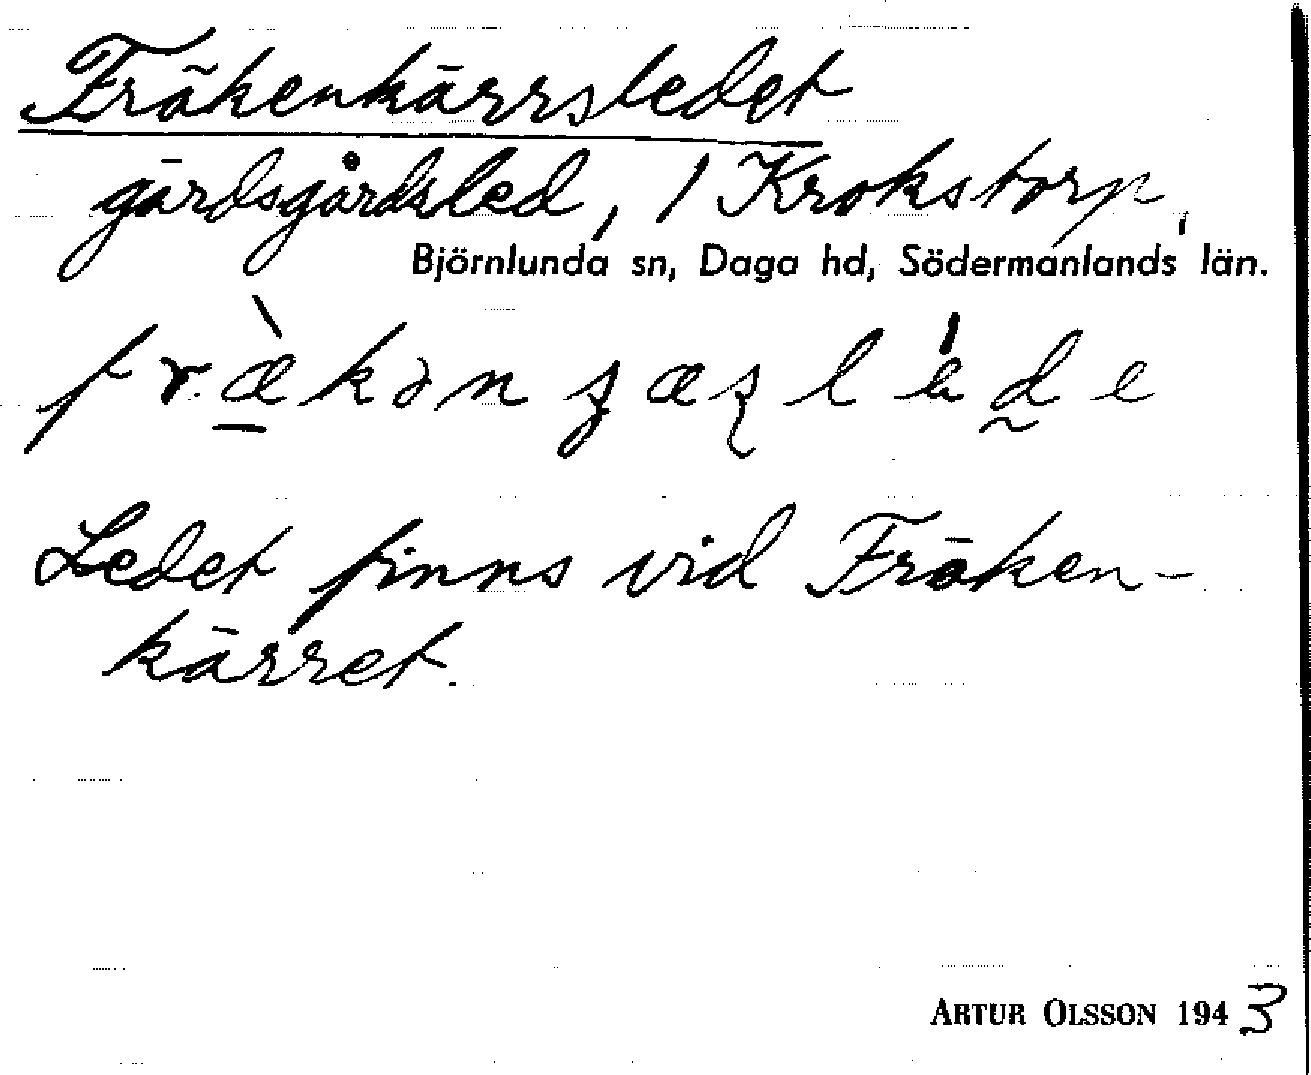 Fräkenkärrsledet
gärdsgårdsled, 1 Krokstorp,
Björnlunda sn, Daga hd, Södermanlands län.
Ledet finns vid Fräken-
kärret.
ARTUR OLSSON 1943